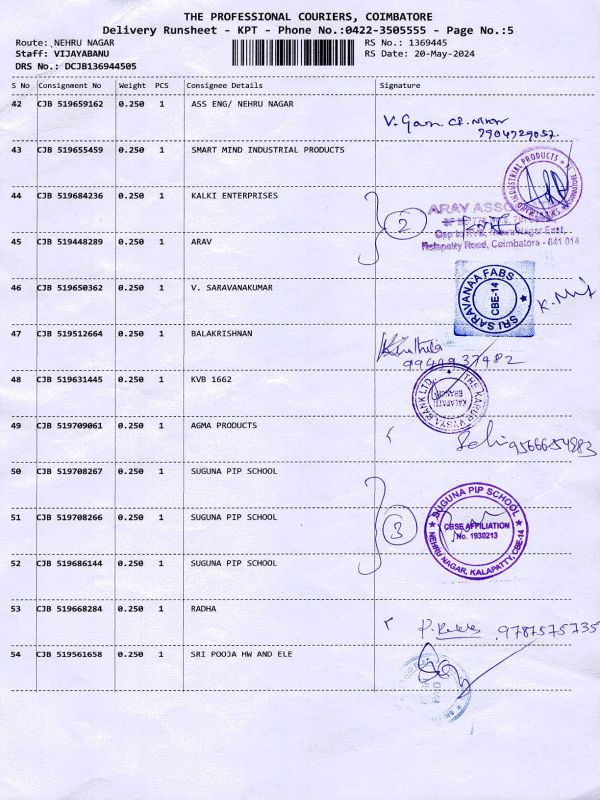 THE PROFESSIONAL COURIERS, COIMBATORE
Delivery Runsheet - KPT - Phone No.:0422-3505555 - Page No.:5
Route: NEHRU NAGAR RS No.: 1369445
Staff: VIJAYABANU RS Date: 20-May-2024
DRS No.: DCJB136944505
S No Consignment No Weight PCS Consignee Details Signature
42 CJB 519659162 0.250 1 ASS ENG/ NEHRU NAGAR
7904729057.
43 CJB 519655459 0.250 1 SMART MIND INDUSTRIAL PRODUCTS
INDUSTRIAL PRODUCTS
44 CJB 519684236 0.250 1 KALKI ENTERPRISES
2
ARAY
Nehru Nagar East,
Kalapatty Road, Coimbatore - 641 014
45 CJB 519448289 0.250 1 ARAV
46 CJB 519650362 0.250 1 V. SARAVANAKUMAR
SRI SARAVANAA FABS
CBE-14
47 CJB 519512664 0.250 1 BALAKRISHNAN
9944937482
48 CJB 519631445 0.250 1 KVB 1662
THE KARUR VYSYA BANK LTD
KALAPATTI
BRANCH
49 CJB 519709061 0.250 1 AGMA PRODUCTS
9566654883
50 CJB 519708267 0.250 1 SUGUNA PIP SCHOOL
51 CJB 519708266 0.250 1 SUGUNA PIP SCHOOL
3
SUGUNA PIP SCHOOL
CBSE AFFILIATION
No. 1930213
NEHRU NAGAR, KALAPATTY, CBE-14
52 CJB 519686144 0.250 1 SUGUNA PIP SCHOOL
53 CJB 519668284 0.250 1 RADHA
9787575735
54 CJB 519561658 0.250 1 SRI POOJA HW AND ELE